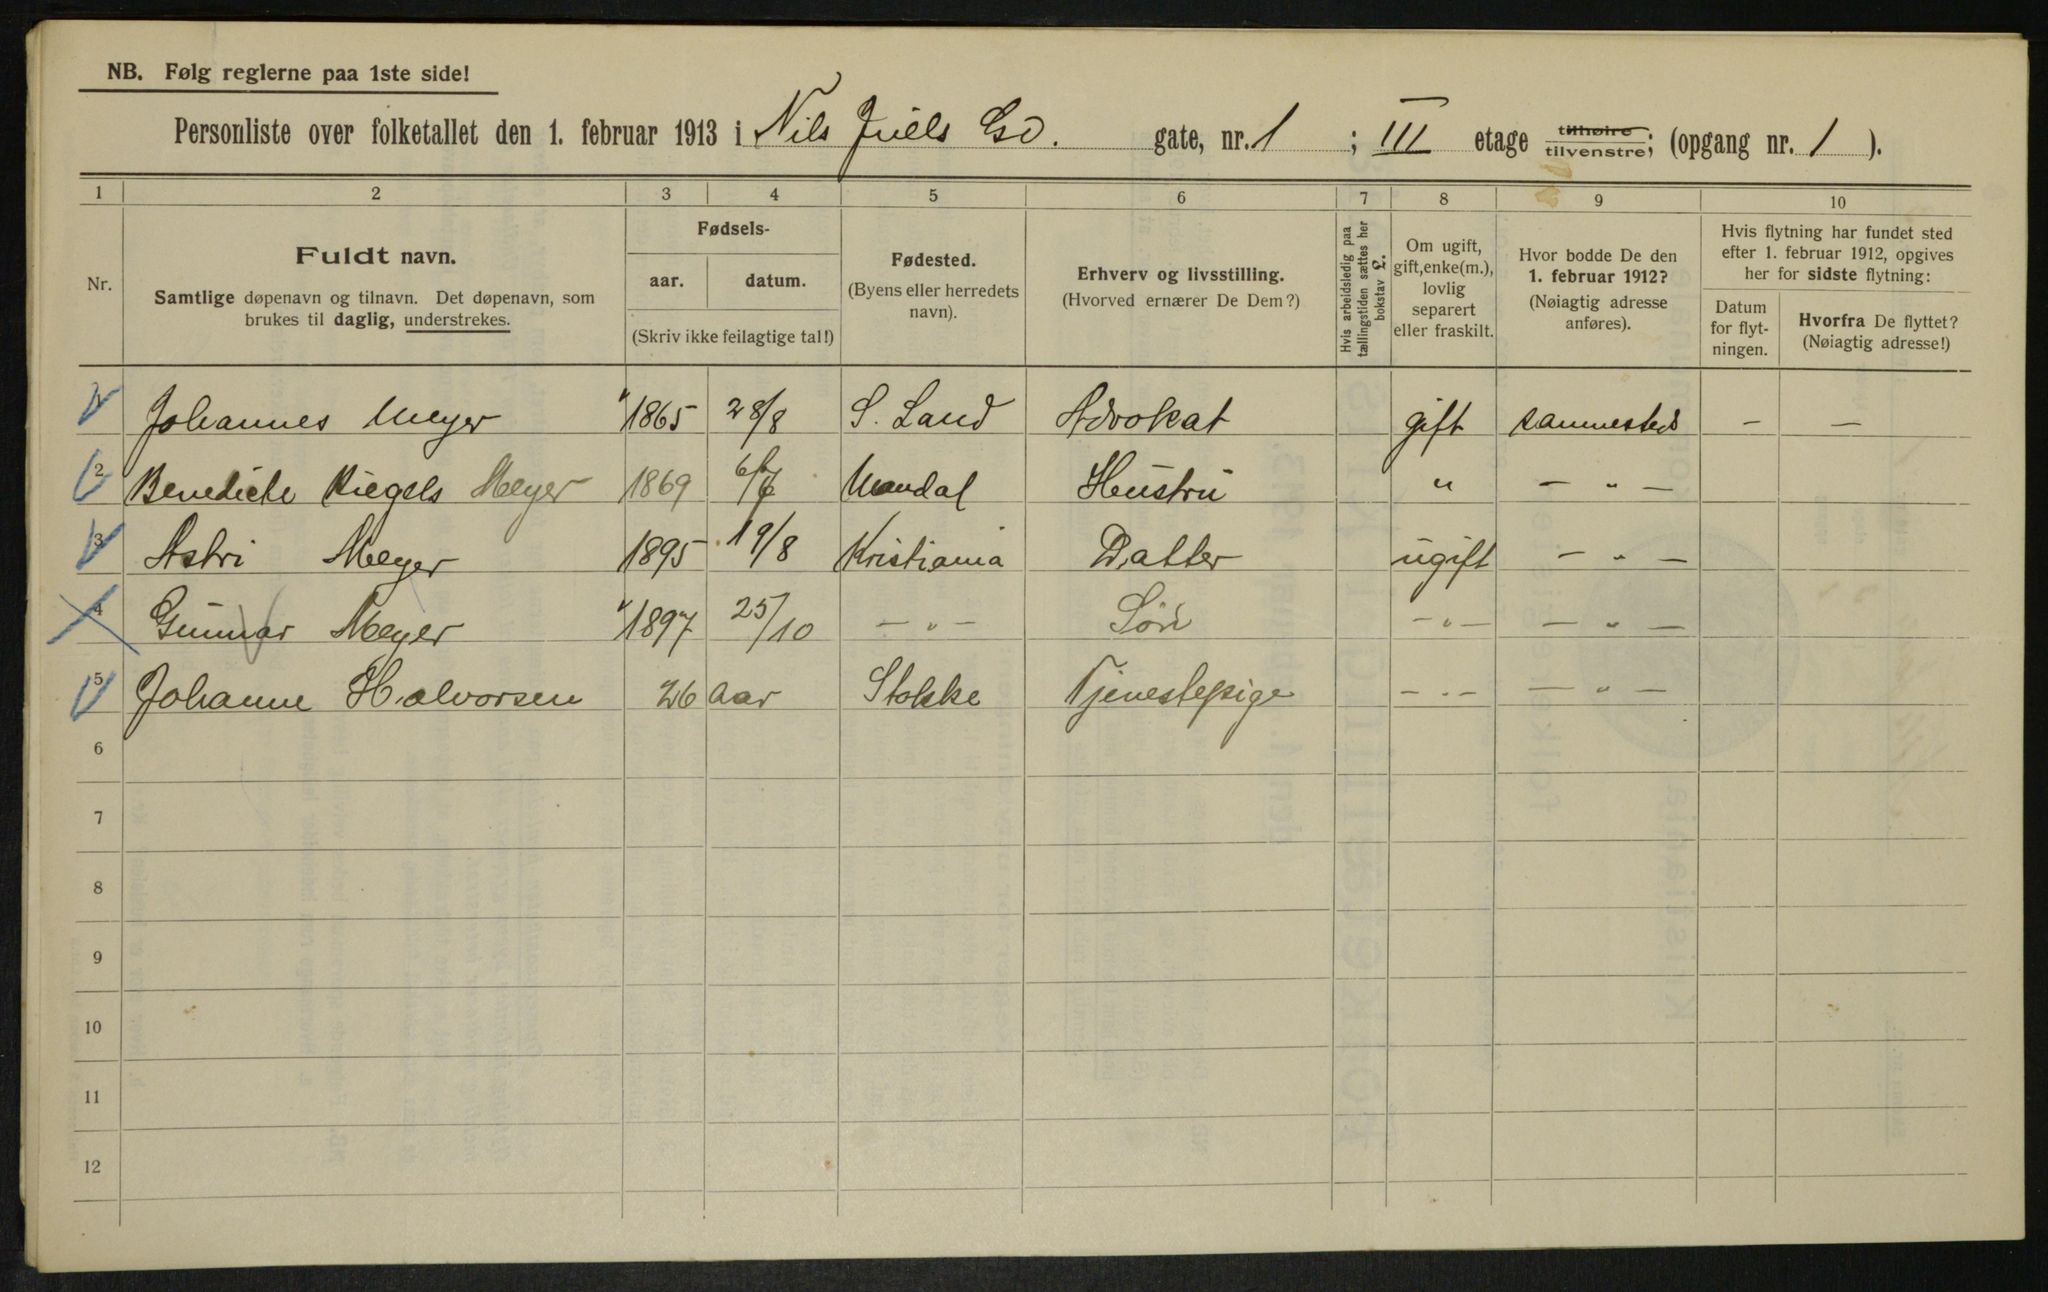 NB. Følg reglerne paa 1ste side!
Personliste over folketallet den 1. februar 1913 i Nils Juels Gd. gate, nr. 1 ; III etage tilhøire tilvenstre; (opgang nr. 1 ).
1 2 3 4 5 6 7 8 9 10
Nr.
Fuldt navn.
Samtlige døpenavn og tilnavn. Det døpenavn, som
brukes til daglig, understrekes.
Fødsels-
aar. datum.
(Skriv ikke feilagtige tal!)
Fødested.
(Byens eller herredets
navn).
Erhverv og livsstilling.
(Hvorved ernærer De Dem?)
Hvis arbeidsledig paa
tællingstiden sættes her
bokstav L.
Om ugift,
gift, enke(m.),
lovlig
separert
eller fraskilt.
Hvor bodde De den
1. februar 1912?
(Nøiagtig adresse
anføres).
Hvis flytning har fundet sted
efter 1. februar 1912, opgives
her for sidste flytning:
Datum
for flyt-
ningen.
Hvorfra De flyttet?
(Nøiagtig adresse!)
1 Johannes Meyer 1865 28/8 S. Land Advokat gift sammesteds – –
2 Benedicte Riegels Meyer 1869 Mandal Hustru " – " –
3 Astri Meyer 1895 19/8 Kristiania Datter ugift – " –
4 Gunnar Meyer 1897 25/10 – " – Søn – " – – " –
5 Johanne Halvorsen 26 aar Stokke Tjenestepige – " – – " –
6
7
8
9
10
11
12